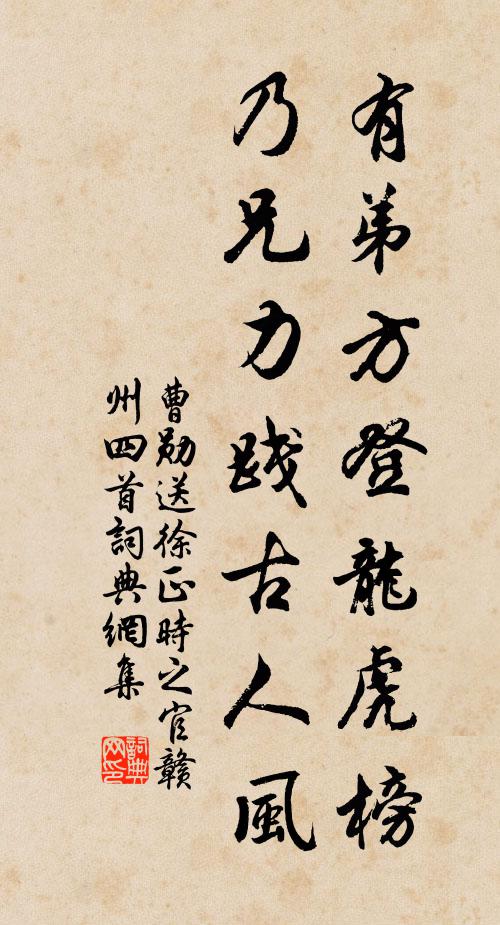 有弟方登龍虎榜
乃兄力践古人風
曹勛送徐正時之官赣
州四首詞典網集
詞典
网印